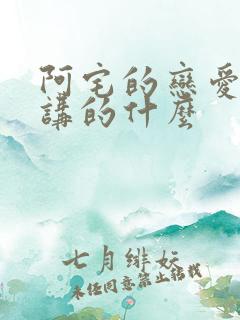 阿宅的戀愛
講的什麼
七月緋妖
未經同意禁止轉載